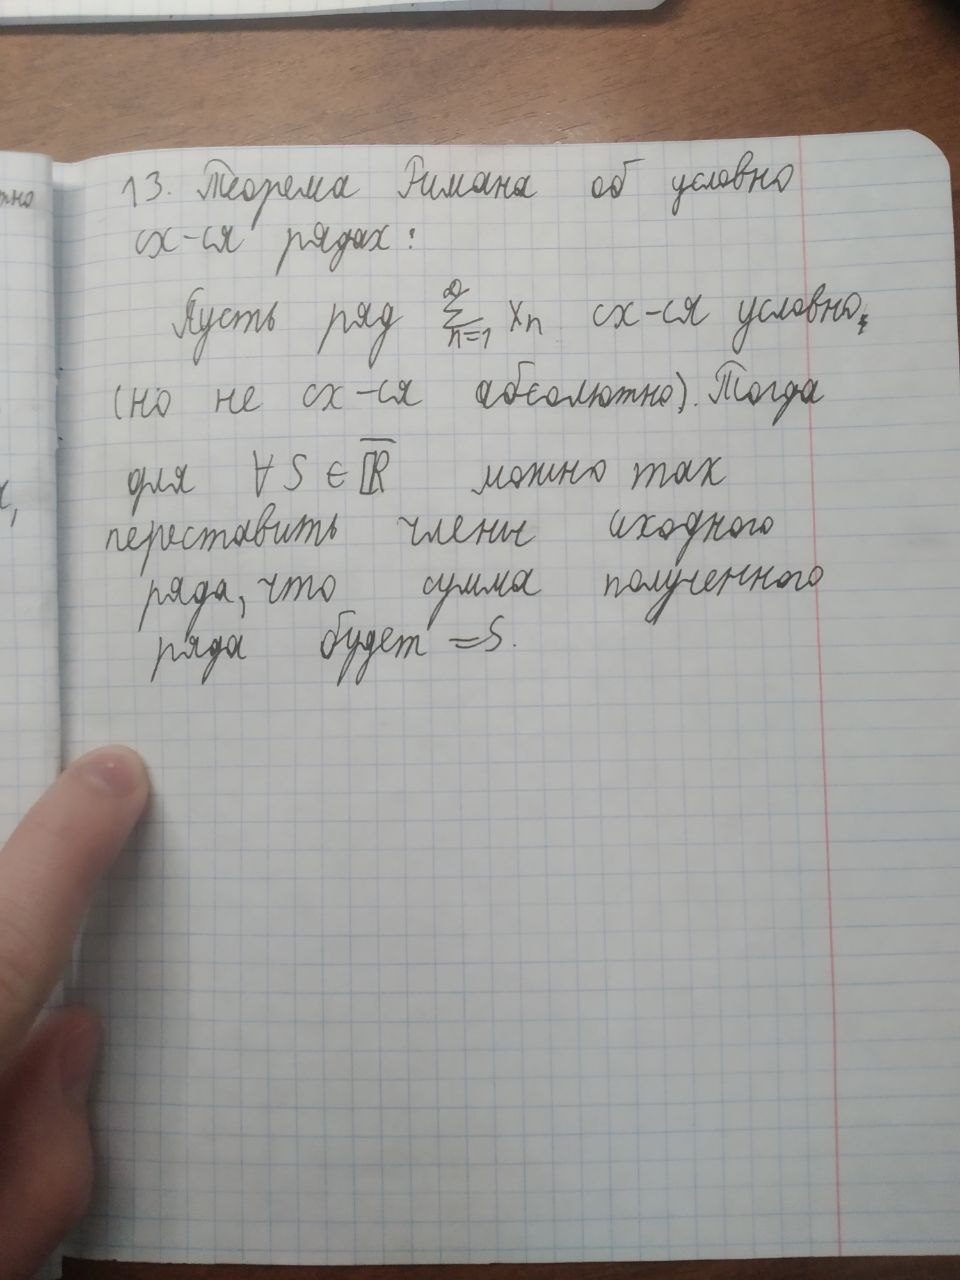 13. Теорема Римана об условно
сх-ся рядах:
Пусть ряд ∑_{n=1}^{∞} x_n сх-ся условно,
(но не сх-ся абсолютно). Тогда
для ∀ S ∈ \overline{ℝ} можно так
переставить члены исходного
ряда, что сумма полученного
ряда будет = S.